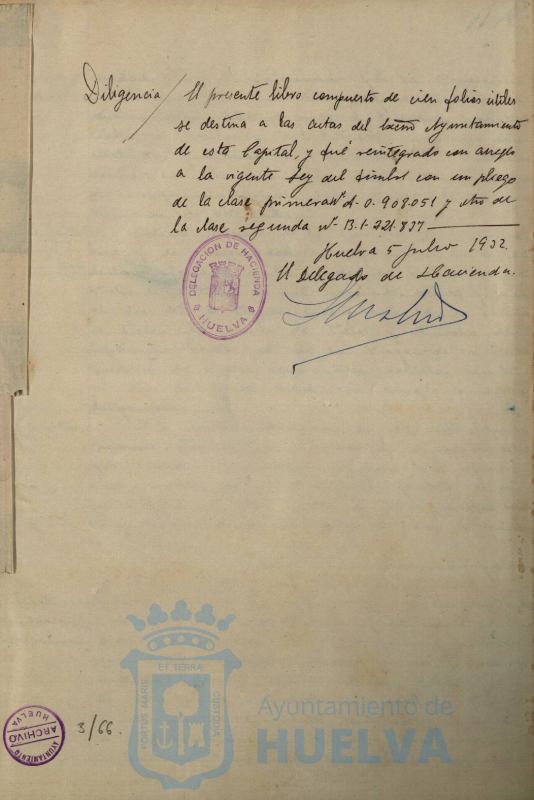 Diligencia / El presente libro compuesto de cien folios útiles
se destina a las actas del Excmo Ayuntamiento
de esta Capital, y fué reintegrado con arreglo
a la vigente Ley del Timbre con un pliego
de la clase primera nº A-0.908.051 y otro de
la clase segunda nº B.1.221.837
Huelva 5 julio 1932.
El Delegado de Hacienda.
DELEGACION DE HACIENDA
HUELVA
PORTUS MARIS ET TERRAE CUSTODIA
Ayuntamiento de
HUELVA
AYUNTAMIENTO
ARCHIVO
HUELVA
3/66.